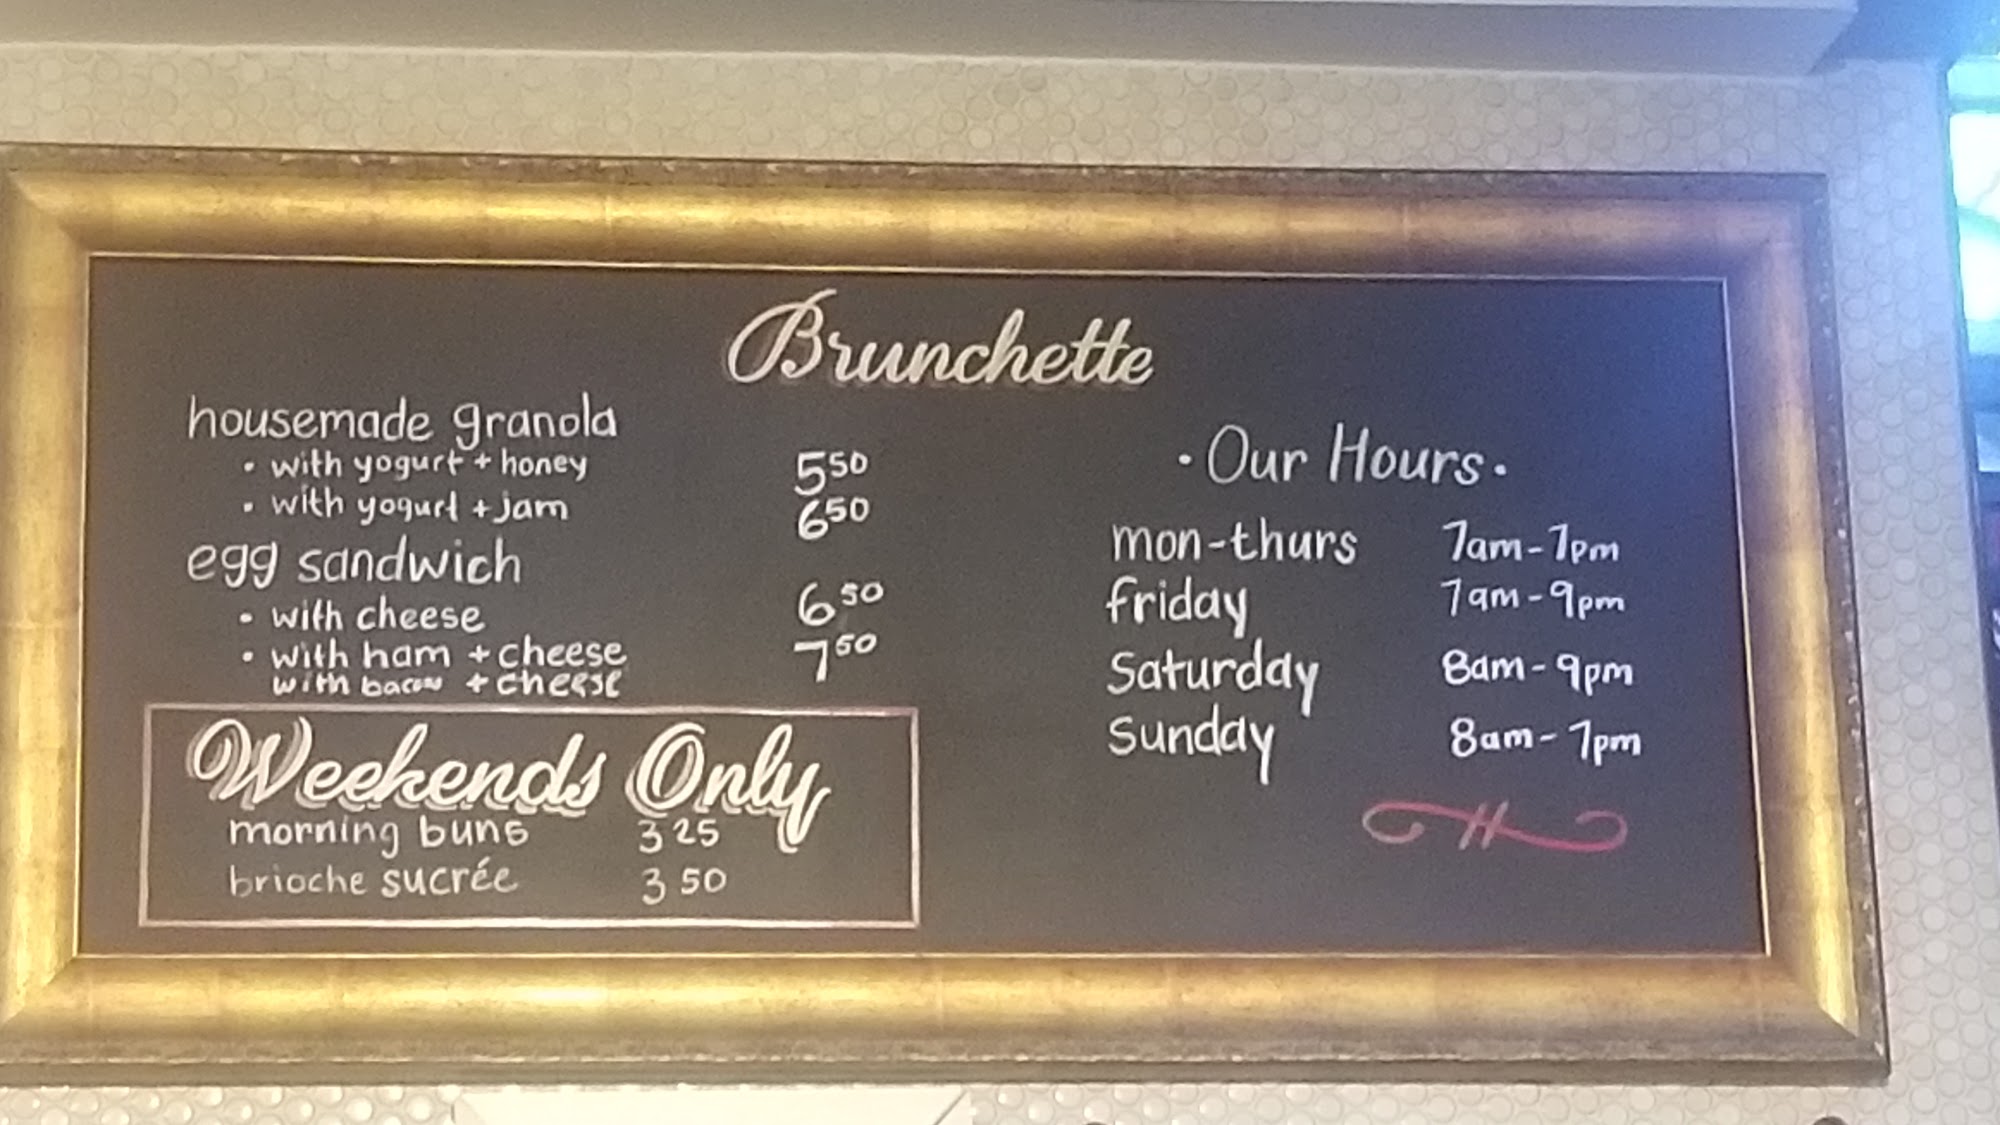 Brunchette
housemade granola
• with yogurt + honey 5 50
• with yogurt + jam 6 50
egg sandwich
• with cheese 6 50
• with ham + cheese 7 50
with bacon + cheese
Weekends Only
morning buns 3 25
brioche sucrée 3 50
• Our Hours •
mon-thurs 7am-7pm
friday 7am-9pm
Saturday 8am-9pm
Sunday 8am-7pm